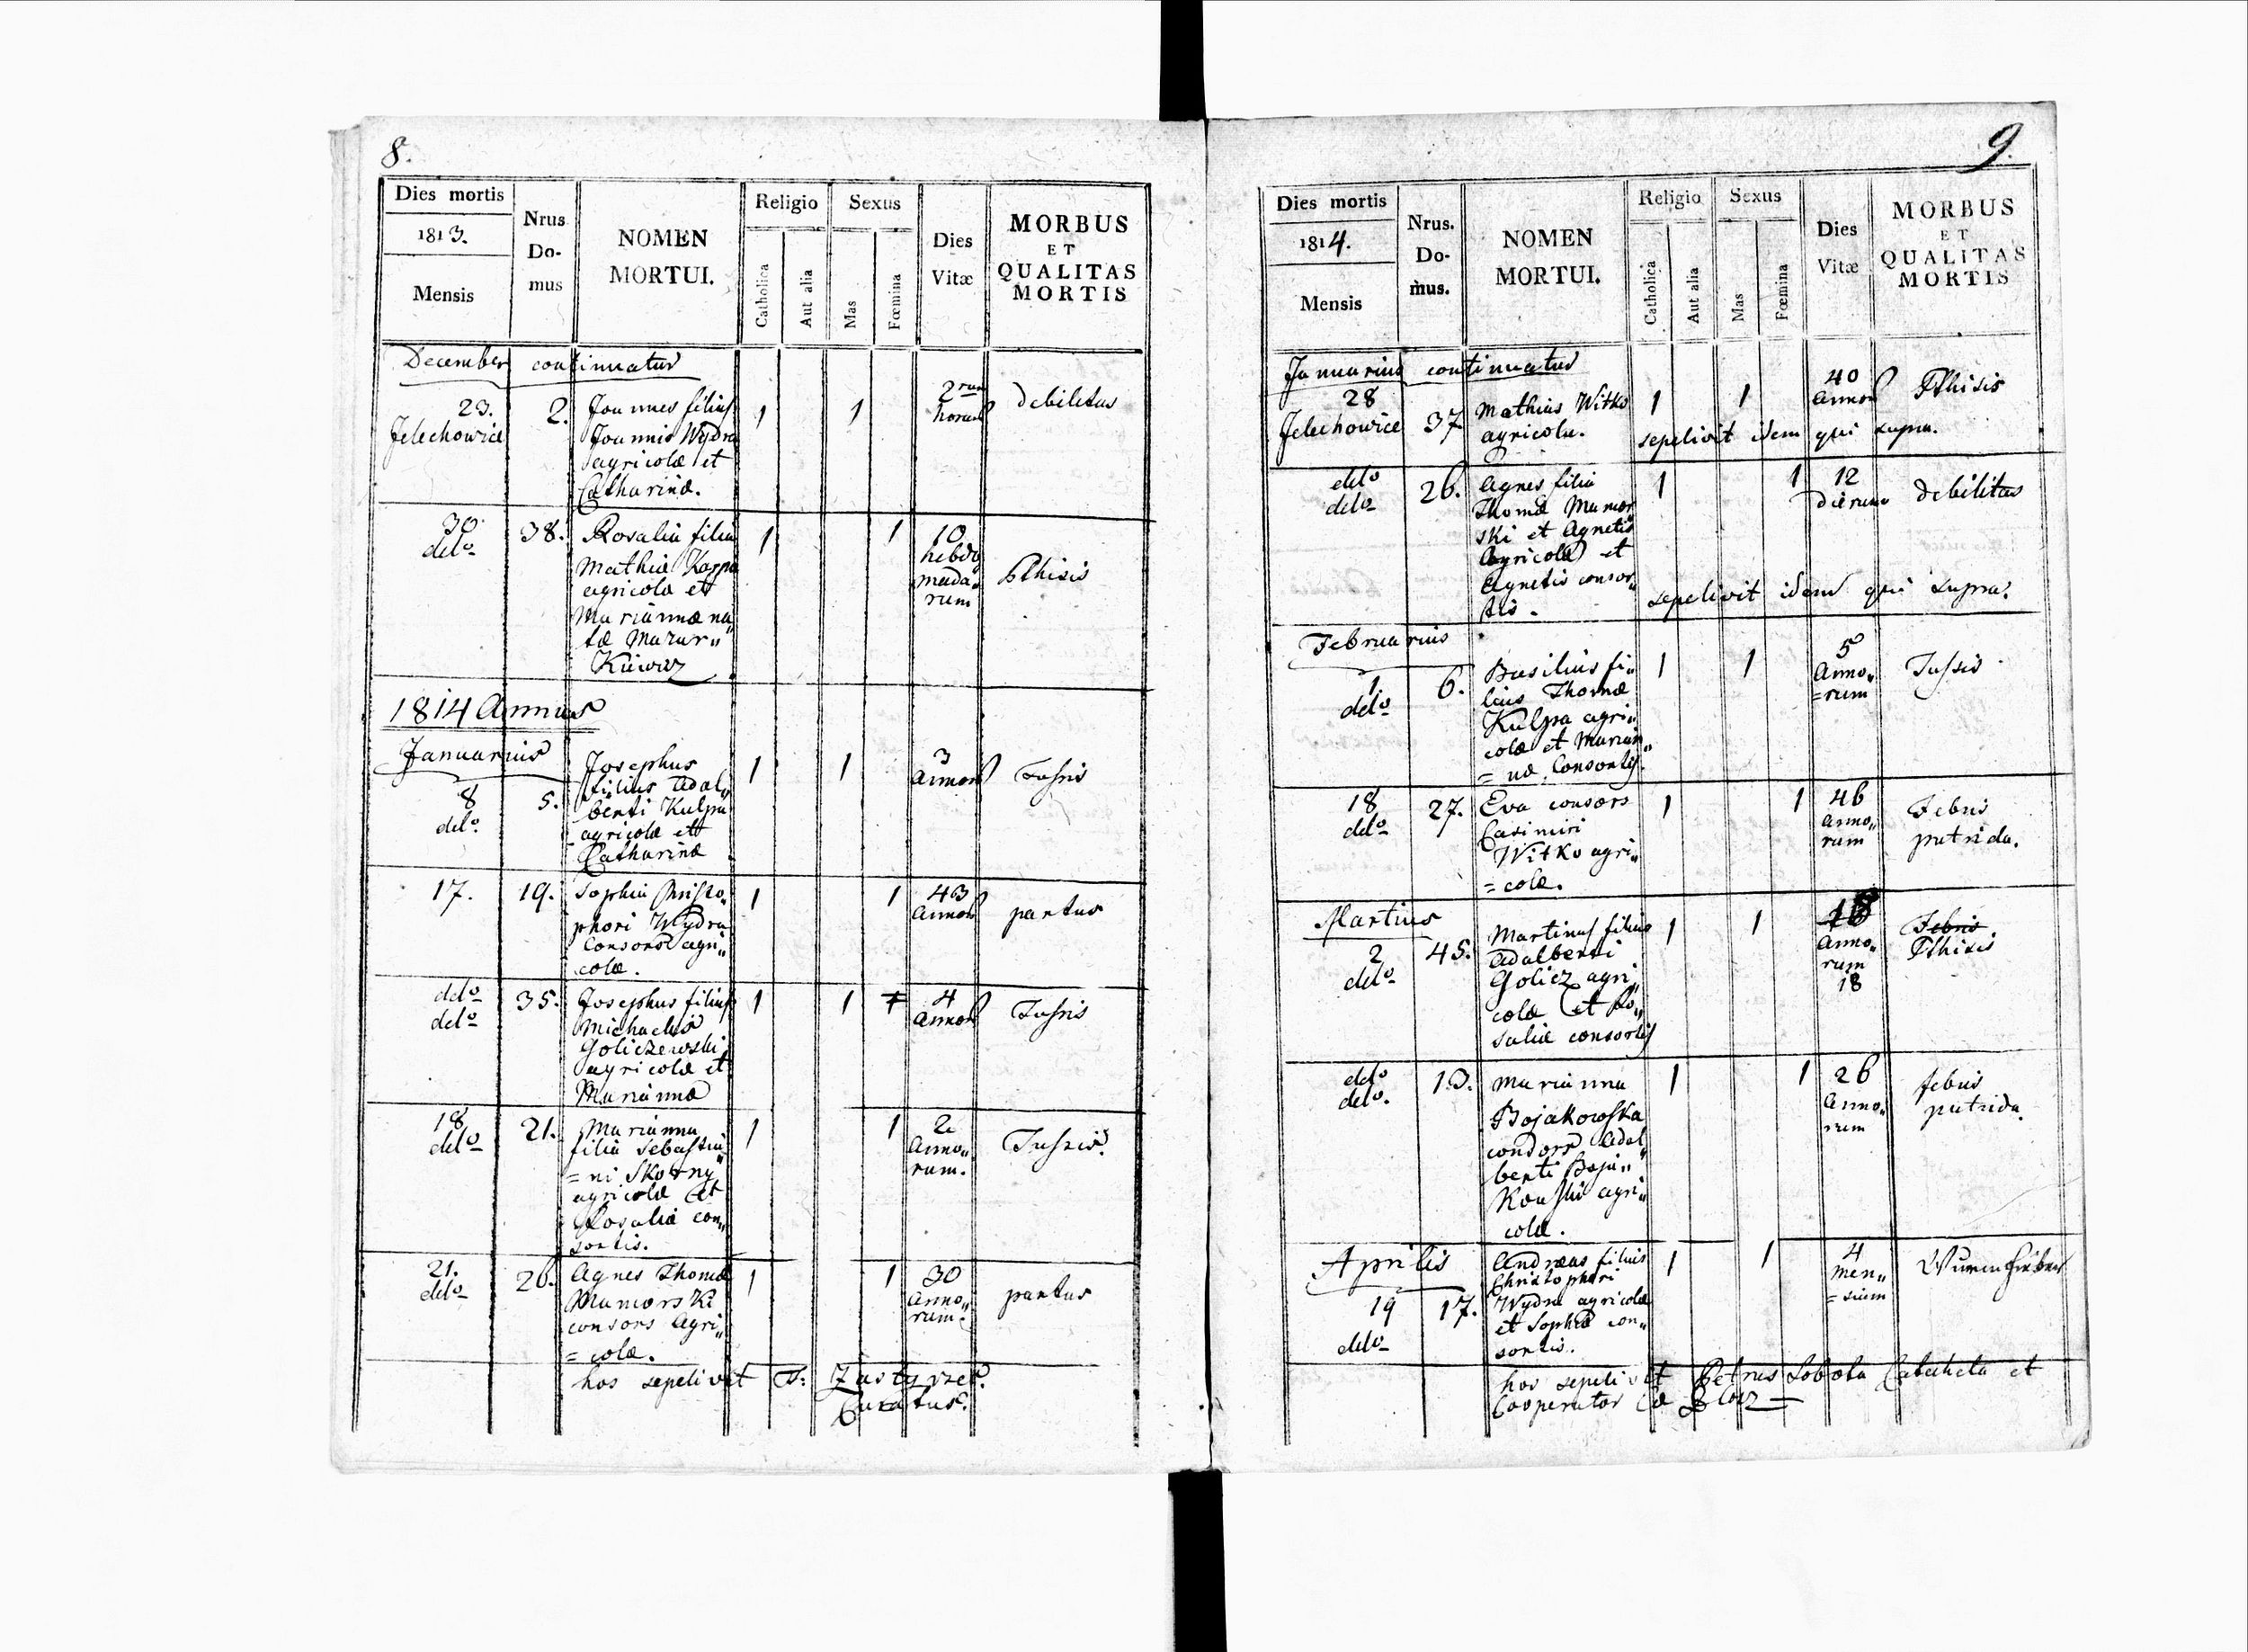 8.
Dies mortis
1813.
Mensis
Nrus
Do-
mus
NOMEN
MORTUI.
Religio
Catholica
Aut alia
Sexus
Mas
Fœmina
Dies
Vitæ
MORBUS
ET
QUALITAS
MORTIS
December continuatur
23.
Jelechowice
2.
Joannes filius
Joannis Wydra
agricolæ et
Catharinæ.
1
1
2rum
horarū
debilitas
30
detto
38.
Rosalia filia
Mathiæ Karpa
agricolæ et
Mariannæ na„
tæ Mazur„
Kiewicz
1
1
10
hebdo„
mada„
rum
Pthisis
1814 Annus
Januarius
8
detto
5.
Josephus
filius Adal„
berti Kulpa
agricolæ et
Catharinæ
1
1
3
Annorū
Tussis
17.
19.
Sophia Christo„
phori Wydra
Consors agri„
colæ.
1
1
43
annorū
partus
detto
detto
35.
Josephus filius
Michaelis
Goliczewski
agricolæ et
Mariannæ
1
1
1
4
annorū
Tussis
18
detto
21.
Marianna
filia Sebastia„
= ni Skorny
agricolæ et
Rosaliæ con„
sortis.
1
1
2
Anno„
rum.
Tussis.
21.
detto
26.
Agnes Thomæ
Mamorski
consors Agri„
= colæ.
1
1
30
Anno„
rum.
partus
hos sepelivit
Curatus.
9.
Dies mortis
1814.
Mensis
Nrus.
Do-
mus.
NOMEN
MORTUI.
Religio
Catholica
Aut alia
Sexus
Mas
Fœmina
Dies
Vitæ
MORBUS
ET
QUALITAS
MORTIS
Januarius continuatur
28
Jelechowice
37
Mathias Witko
agricola.
1
1
40
annorū
Pthisis
sepelivit idem qui supra.
detto
detto
26.
Agnes filia
Thomæ Mamor„
ski et Agnetis
Agricolæ et
Agnetis consor„
tis.
1
1
12
dierum
debilitas
sepelivit idem qui supra.
Februarius
1
detto
6.
Basilius fi„
lius Thomæ
Kulpa agri„
colæ et Marian„
= næ Consortis.
1
1
5
Anno„
= rum
Tussis
18
detto
27.
Eva consors
Casimiri
Witko agri„
= colæ.
1
1
46
anno„
rum
Febris
putrida.
Martius
2
detto
45.
Martinus filius
Adalberti
Golicz agri„
colæ et Ro„
saliæ consortis
1
1
18
anno„
rum
18
Febris
Pthisis
detto
detto.
13.
Marianna
Bojakowska
consors Adal„
berti Boja„
Kowski agri„
colæ.
1
1
26
Anno„
rum
febris
putrida.
Aprilis
19
detto
17.
Andreas filius
Christophori
Wydra agricolæ
et Sophiæ con„
sortis.
1
1
4
men„
= sium
hos sepelivit Petrus Sobota Catecheta et
Cooperator